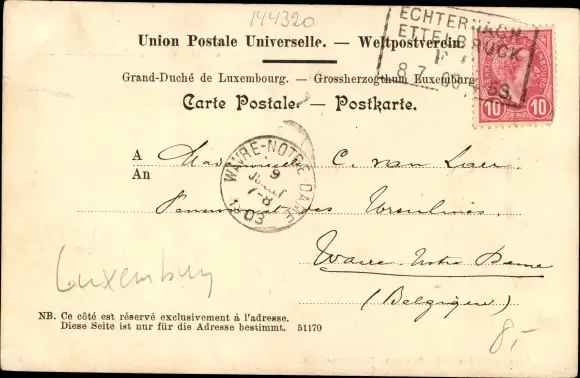 144320
ECHTERNACH
ETTELBRUCK
8 7
Union Postale Universelle. — Weltpostverein.
Grand-Duché de Luxembourg. — Grossherzogthum Luxemburg
Carte Postale — Postkarte.
10 10
WAVRE-NOTRE DAME
9
JUILLET
7-8
1903
A Mademoiselle C. van Laer
An
Pensionnat des Ursulines
Wavre Notre Dame
(Belgique)
Luxemburg
NB. Ce côté est réservé exclusivement à l'adresse.
Diese Seite ist nur für die Adresse bestimmt. 51170
8,-